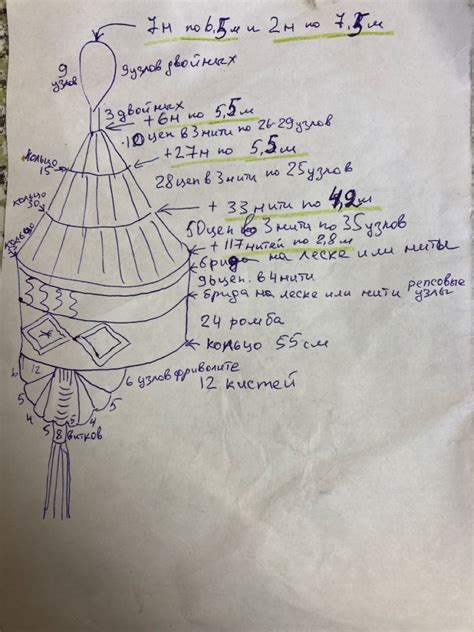 7н по 6,5м и 2н по 7.5м
9 узлов
9узлов двойных
3двойных
+6н по 5,5м
10цеп в 3нити по 26-29узлов
кольцо 15
+27н по 5,5м
28цеп в 3 нити по 25узлов
кольцо 30
+ 33 нити по 4,2м
50цеп в 3 нити по 35узлов
+ 117нитей по 2,8м
брида на леске или нити
96цеп. в 4нити
брида на леске или нити репсовые узлы
24 ромба
кольцо 55см
6 12
6 узлов фриволите
12 кистей
5 5
4 5 4
5 8 витков